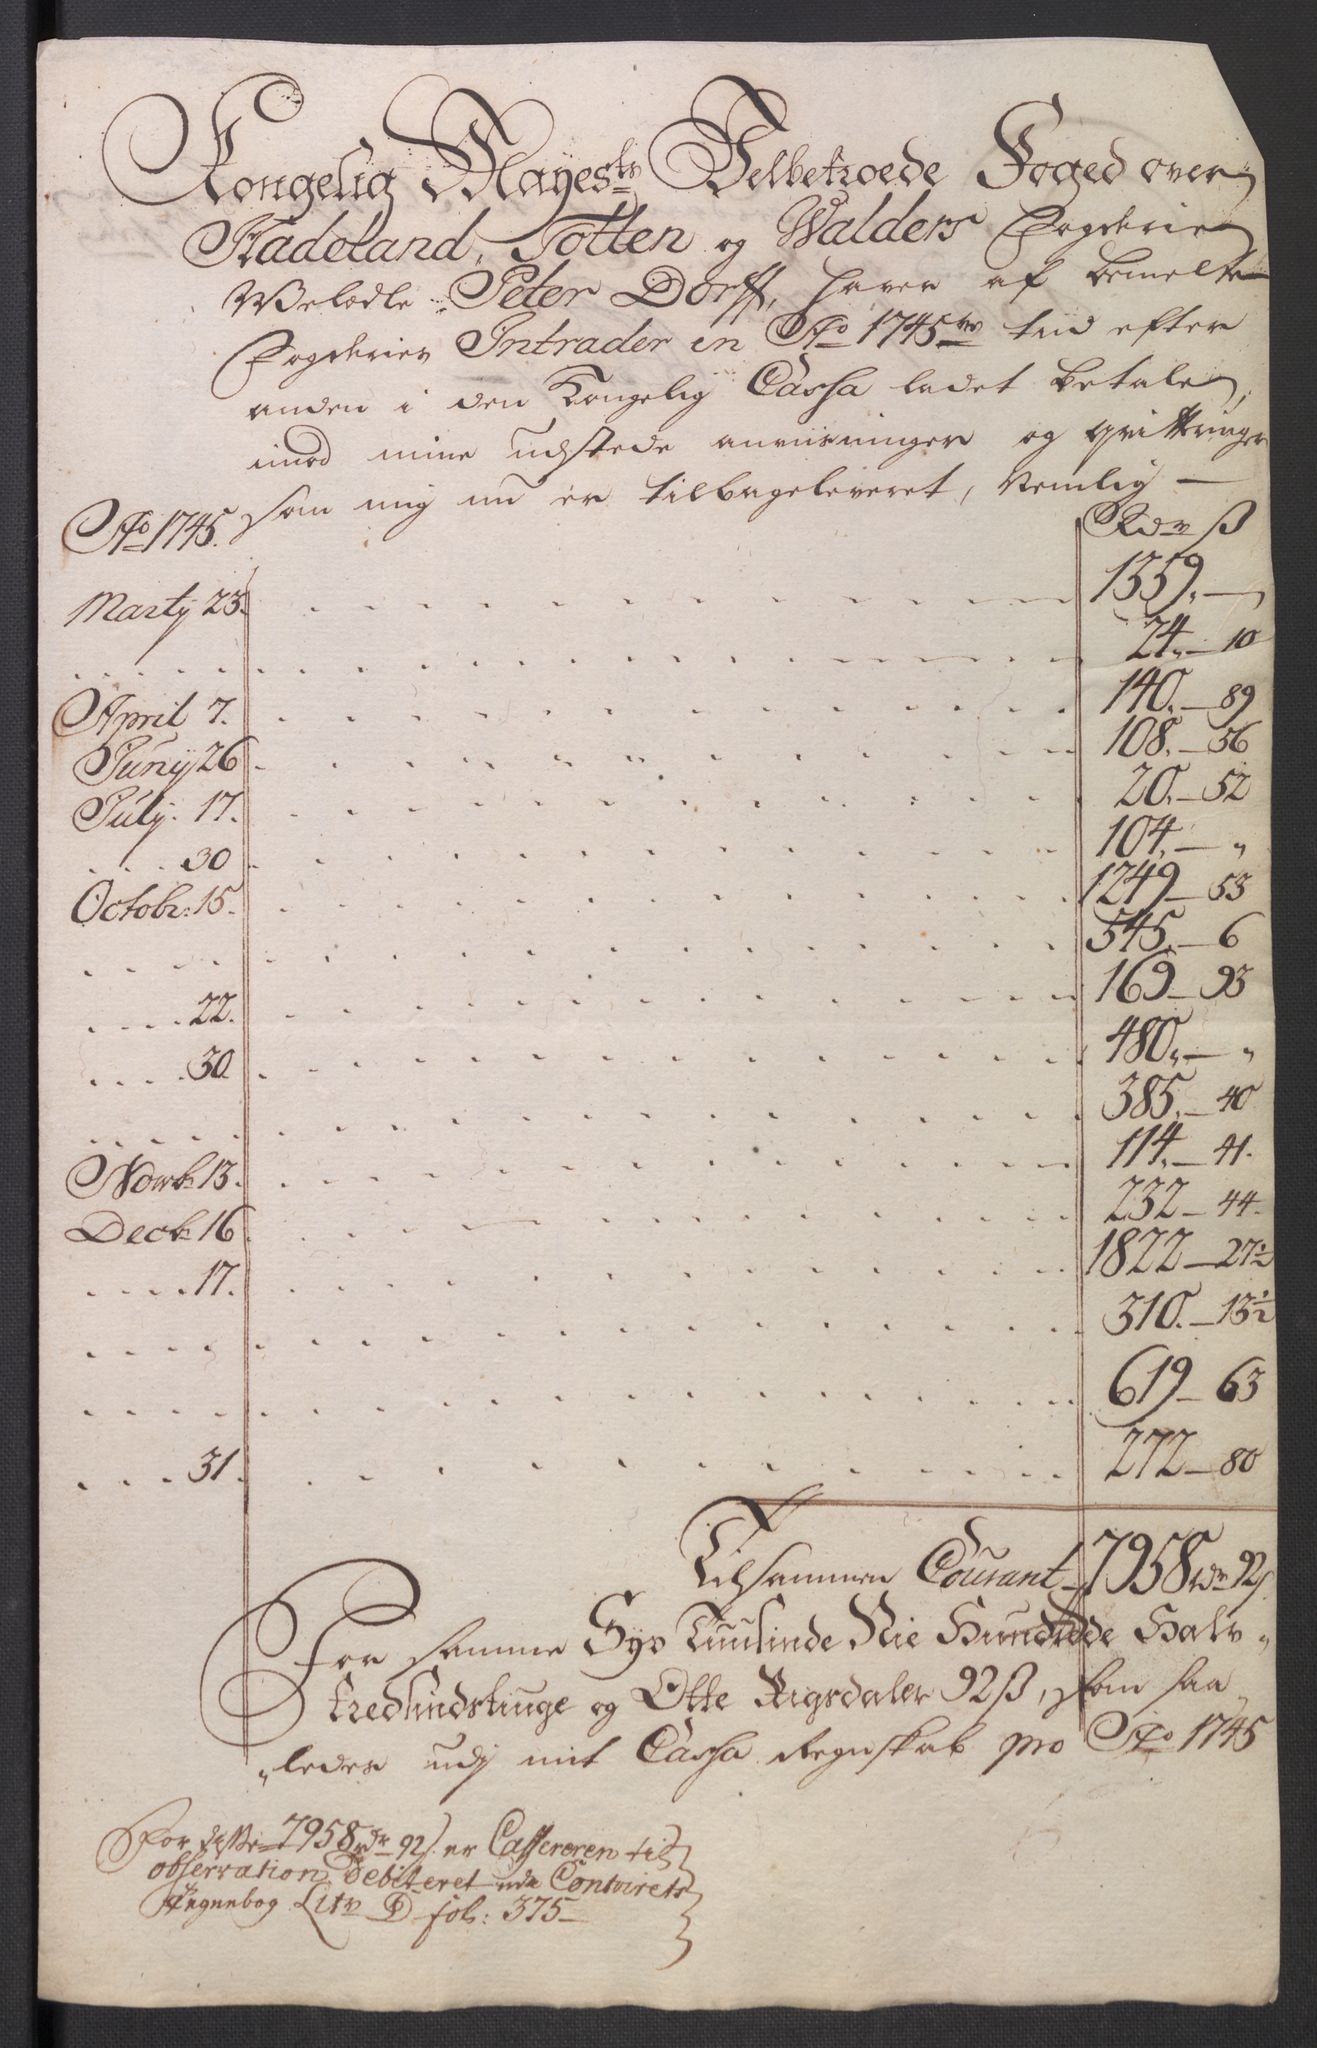 Kongelig Mayestz Velbetroede Foged over
Hadeland, Totten og Walders Fogderie
Welædle Peter Dorff, haver af bemelte
Fogderies Intrader en Ao 1745 tiid efter
anden i den Kongelig Cassa ladet betale,
imod mine udstede anviisninger og qvitteringer
som mig nu er tilbageleveret, Nemlig —
Ao 1745. Rdr ß
Marty 23. 1359. —
24. — 10
April 7. 140. — 89
Juny 26 108. — 56
July. 17. 20. — 52
30 104. — "
Octobr: 15. 1249 — 53
545. — 6
22. 169 — 93
30. 480. — "
385. — 40
Novb: 13. 114. — 41.
Decb: 16 232 — 44.
17. 1822 — 27½
310. — 13½
619 — 63
31. 272 — 80
Tilsammen Courant 7958 rdr 92 ß.
For samme Syv Tuusinde Nie Hundrede Halv-
tredsindstiuge og Otte Rigsdaler 92 ß, som saa-
ledes udj mit Cassa Regnskab pro Ao 1745
For disse 7958 rdr 92 ß. er Cassereren til
observation Debiteret udi Contoirets
Regnebog Litr D fol: 375 —